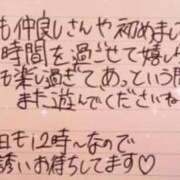 も仲良しさんや初めまし
時間を過ごせて嬉し
も楽し過ぎてあっという間
また遊んでくださいな
日も12時〜なので
誘いお待ちしてます♡